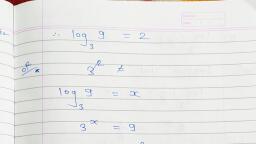 ∴ log₃ 9 = 2
3² ≠
log₃ 9 = x
3ˣ = 9